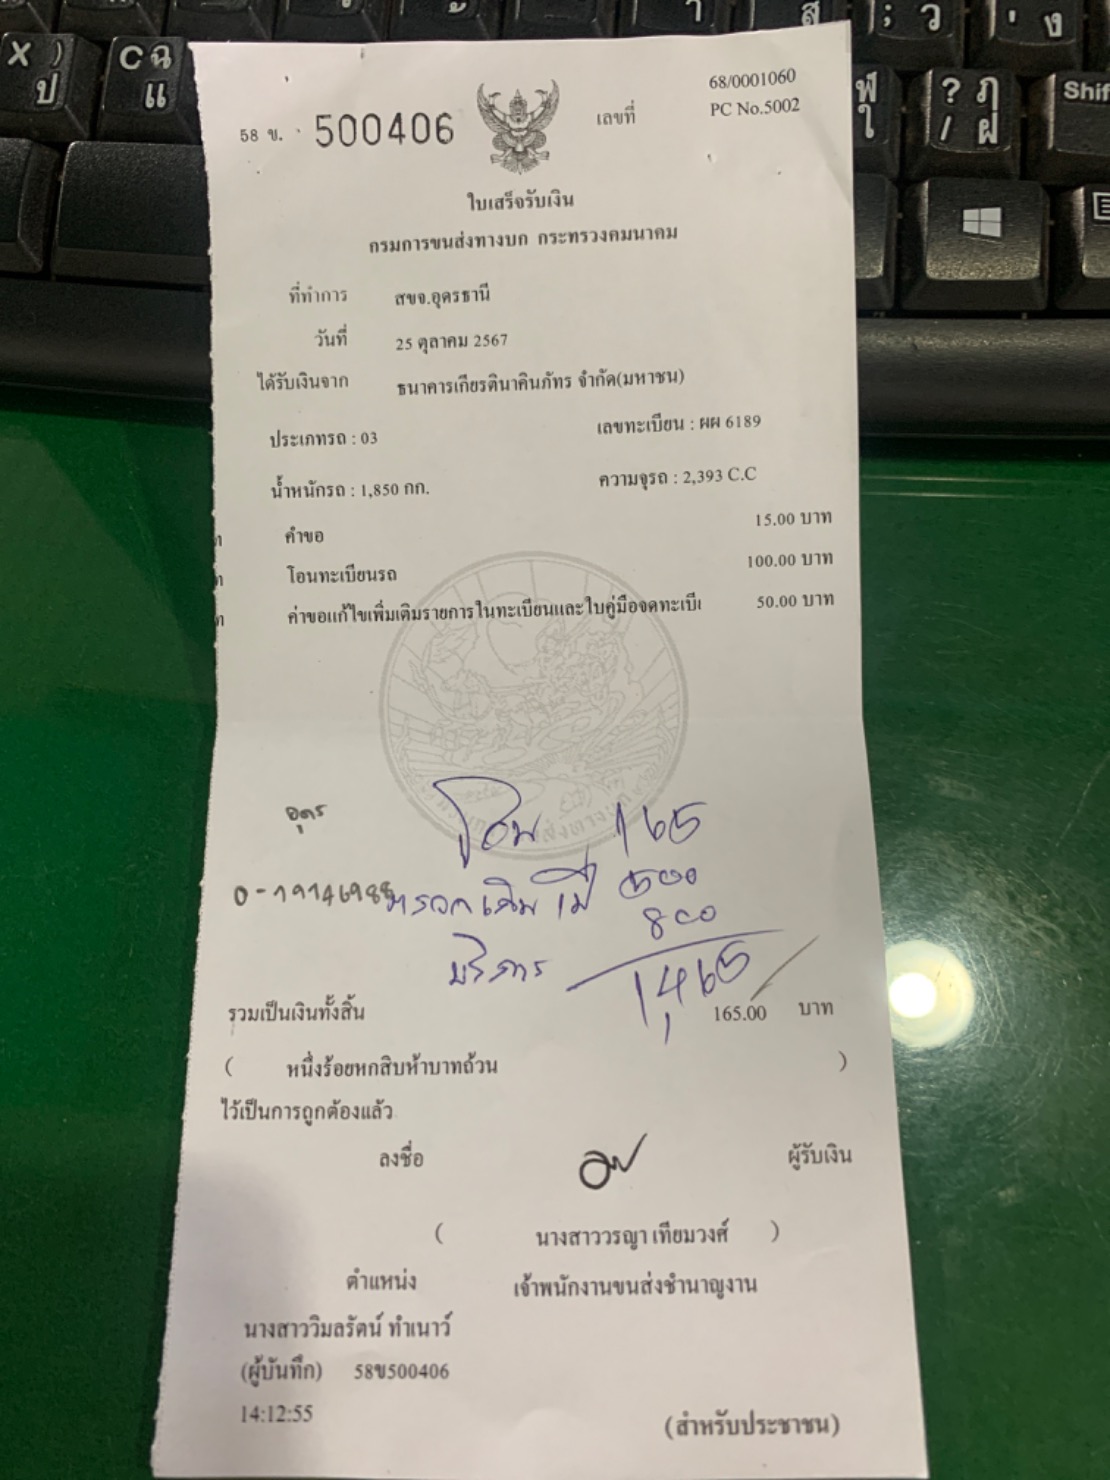 58 ข. 500406
เลขที่
68/0001060
PC No.5002
ใบเสร็จรับเงิน
กรมการขนส่งทางบก กระทรวงคมนาคม
ที่ทำการ สขจ.อุดรธานี
วันที่ 25 ตุลาคม 2567
ได้รับเงินจาก ธนาคารเกียรตินาคินภัทร จำกัด(มหาชน)
ประเภทรถ : 03 เลขทะเบียน : ผผ 6189
น้ำหนักรถ : 1,850 กก. ความจุรถ : 2,393 C.C
คำขอ 15.00 บาท
โอนทะเบียนรถ 100.00 บาท
ค่าขอแก้ไขเพิ่มเติมรายการในทะเบียนและใบคู่มือจดทะเบี 50.00 บาท
อุดร
โอน 165
500
800
บริการ 1,465
รวมเป็นเงินทั้งสิ้น 165.00 บาท
( หนึ่งร้อยหกสิบห้าบาทถ้วน )
ไว้เป็นการถูกต้องแล้ว
ลงชื่อ ผู้รับเงิน
( นางสาววรญา เทียมวงศ์ )
ตำแหน่ง เจ้าพนักงานขนส่งชำนาญงาน
นางสาววิมลรัตน์ ทำเนาว์
(ผู้บันทึก) 58ข500406
14:12:55
(สำหรับประชาชน)
X )
ป
C ฉ
แ
า
ส
; ว
' ง
ฟ้
ใ
? ฦ
/ ฝ
Shif